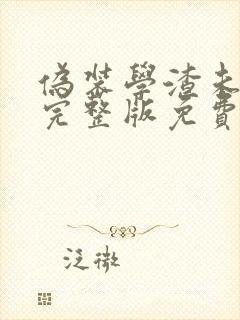 偽裝學渣未
完整版免費
泛微